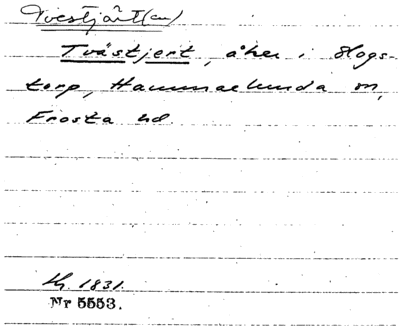 Tvestjärt(en)
Tvåstjert, åker i Hogs-
torp, Hammarlunda sn,
Frosta hd.
Lh. 1831.
Nr 5553.